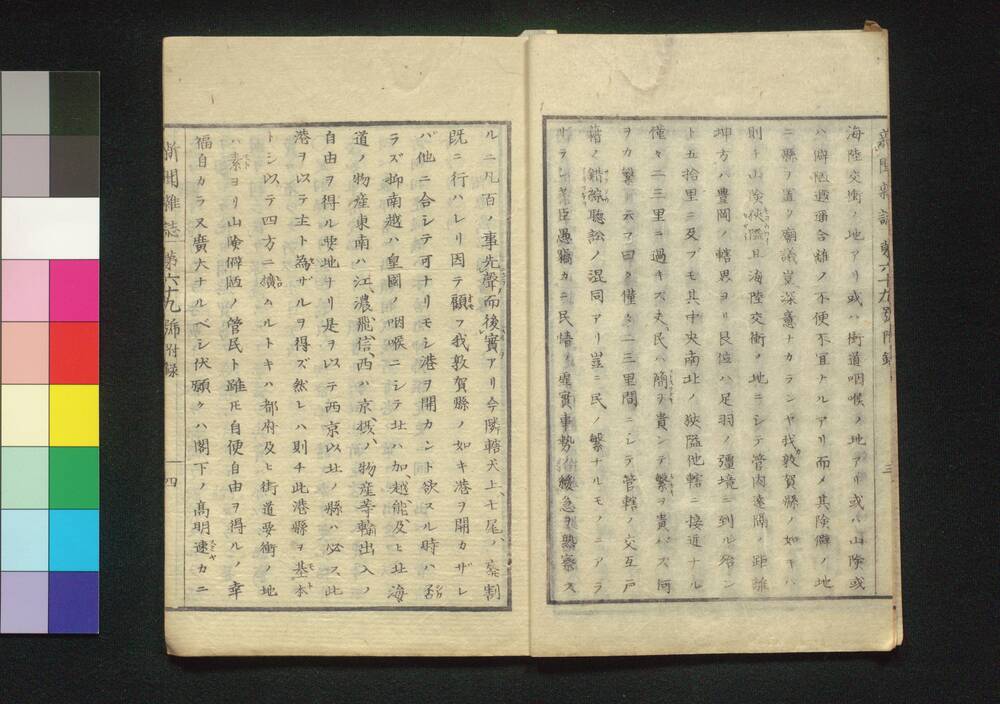 新聞雜誌 第六十九號附錄 三
海陸交衝ノ地アリ或ハ街道咽喉ノ地アリ或ハ山險或
ハ僻陋遐番合離ノ不便不宜ナルアリ而〆其險僻ノ地
ニ縣ヲ置ク廟議豈深意ナカランヤ我敦賀縣ノ如キハ
則チ山險狹隘且海陸交衝ノ地ニシテ管内遠隔ノ距離
坤方ハ豊岡ノ轄界ヨリ艮位ハ足羽ノ彊境ニ到ル殆ン
ト五拾里ニ及ブモ其中央南北ノ狹隘他轄ニ接近ナル
僅々二三里ニ過キス夫民ハ簡ヲ貴ンテ繁ヲ貴バス何
ヲカ繁ト云フ曰ク僅々二三里間ニシテ管轄ノ交互戸
籍ノ錯綜聽訟ノ混同アリ豈ニ民ノ繁ナルモノニアラ
臣愚竊カニ民情ノ虚實事勢ノ緩急ヲ熟察ス
ルニ凡百ノ事先聲而後實アリ今隣轄犬上七尾ノ廢割
既ニ行ハレリ因テ顧フ我敦賀縣ノ如キ港ヲ開カザレ
バ他ニ合シテ可ナリモシ港ヲ開カント欲スル時ハ否
ラズ抑南越ハ皇國ノ咽喉ニシテ北ハ加越能及ヒ北海
道ノ物産東南ハ江濃飛信西ハ京摂ノ物産等輸出入ノ
自由ヲ得ル要地ナリ是ヲ以テ西京以北ノ縣ハ必ス此
港ヲ以テ主ト為ザルヲ得ズ然レハ則チ此港縣ヲ基本
トシ以テ四方ニ擴ムルトキハ都府及ヒ街道要衝ノ地
ハ素ヨリ山險僻陋ノ管民ト雖𪜈自便自由ヲ得ルノ幸
福自カラ又廣大ナルベシ伏願クハ閣下ノ高明速カニ
新聞雜誌 第六十九號附錄 四